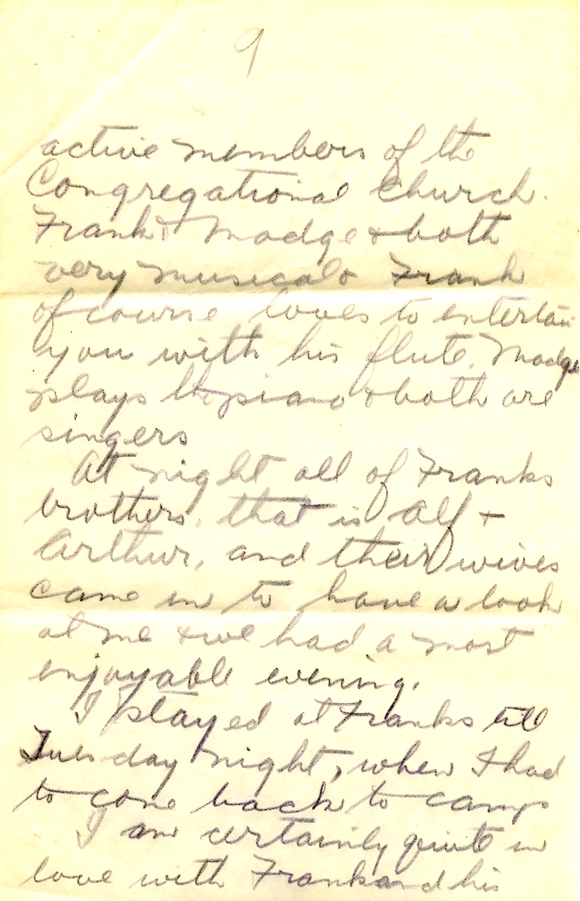 9
active members of the
Congregational Church.
Frank & Madge & both
very musical Frank
of course loves to entertain
you with his flute. Madge
plays the piano & both are
singers
At night all of Franks
brothers, that is Alf &
Arthur, and their wives
came in to have a look
at me & we had a most
enjoyable evening.
I stayed at Franks till
Tuesday night, when I had
to come back to camp
I am certainly quite in
love with Frank and his